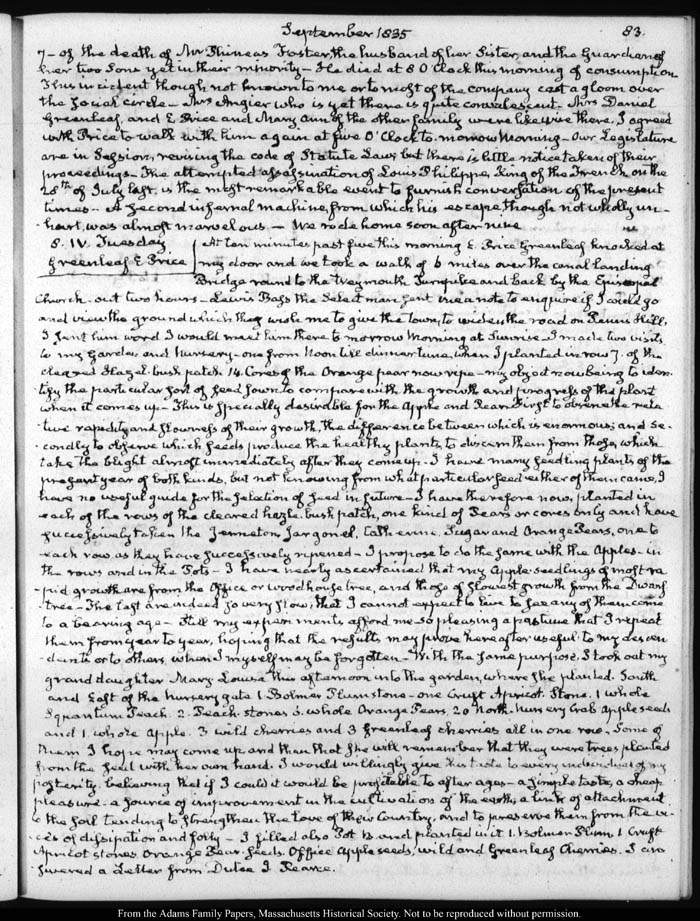 September 1835
83.
7 - of the death of Mr Phineas Foster, the husband of her Sister, and the Guardian of
her two Sons yet in their minority - He died at 8 O'Clock this morning of consumption
This incident though not known to me or to most of the company cast a gloom over
the social circle - Mrs Angier who is yet there is quite convalescent. Mrs Daniel
Greenleaf, and E. Price and Mary Ann of the other family were likewise there. I agreed
with Price to walk with him again at five O'Clock to-morrow Morning - Our Legislature
are in Session, revising the code of Statute Law, but there is little notice taken of their
proceedings - The attempted assassination of Louis Philippe, King of the French on the
28th of July last, is the most remarkable event to furnish conversation of the present
times - A second infernal machine, from which his escape, though not wholly un-
hurt, was almost marvelous - We rode home soon after nine
8. IV. Tuesday
Greenleaf E Price
At ten minutes past five this morning E. Price Greenleaf knocked at
my door and we took a walk of 6 miles over the canal landing
Bridge round to the Weymouth Turnpike and back by the Episcopal
Church - out two hours - Lewis Bass the Select man, sent me a note to enquire if I could go
and view the ground which they wish me to give the town, to widen the road on Penns Hill,
I sent him word I would meet him there to morrow Morning at Sunrise - I made two visits
to my Garden and Nursery - one from Noon till dinner time, when I planted in row 7. of the
cleared Hazel bush patch 14. Cores of the Orange pear now ripe - my object now being to iden-
tify the particular sort of seed sown to compare with the growth and progress of the plant
when it comes up - This is specially desirable for the Apple and Pear. First to observe the rela-
tive rapidity and slowness of their growth, the difference between which is enormous; and se-
condly to observe which seeds produce the healthy plants, to discern them from those, which
take the blight almost immediately after they come up - I have many seedling plants of the
present year of both kinds, but not knowing from what particular seed either of them came, I
have no useful guide for the selection of seed in future - I have therefore now, planted in
each of the rows of the cleared hazle bush patch, one kind of Pears or cores only and have
successively taken the Jermeton, Jargonel, Catherine, Sugar and Orange Pears, one to
each row as they have successively ripened - I propose to do the same with the Apples - in
the rows and in the Pots - I have nearly ascertained that my Apple seedlings of most ra-
pid growth are from the Office or woodhouse tree, and those of slowest growth from the Dwarf
tree - The last are indeed so very slow, that I cannot expect to live to see any of them come
to a bearing age - Still my experiments afford me so pleasing a pastime that I repeat
them from year to year, hoping that the results may prove hereafter useful to my descen-
dants or to others, when I myself may be forgotten - With the same purpose, I took out my
grand daughter Mary Louisa this afternoon into the garden, where she planted. South
and East of the nursery gate 1. Bolmer Plum stone - one Cruft Apricot Stone, 1 whole
Squantum Peach. 2. Peach stones 3. whole Orange Pears, 20 North nursery Crab Apple seeds
and 1. whole Apple. 3 wild cherries and 3 Greenleaf cherries all in one row. Some of
them I hope may come up and then that she will remember that they were trees planted
from the seed with her own hand. I would willingly give this taste to every individual of my
posterity. believing that if I could it would be profitable to after ages - a simple taste, a cheap
pleasure - a source of improvement in the cultivation of the earth, a link of attachment
to the soil tending to strengthen the love of their Country, and to preserve them from the vi-
ces of dissipation and folly - I filled also Pot 13. and planted in it 1. Bolmer Plum, 1 Cruft
Apricot stones Orange Pear seeds. Office Apple seeds, wild and Greenleaf Cherries. I an-
swered a Letter from Dutee J. Pearce.
From the Adams Family Papers, Massachusetts Historical Society. Not to be reproduced without permission.